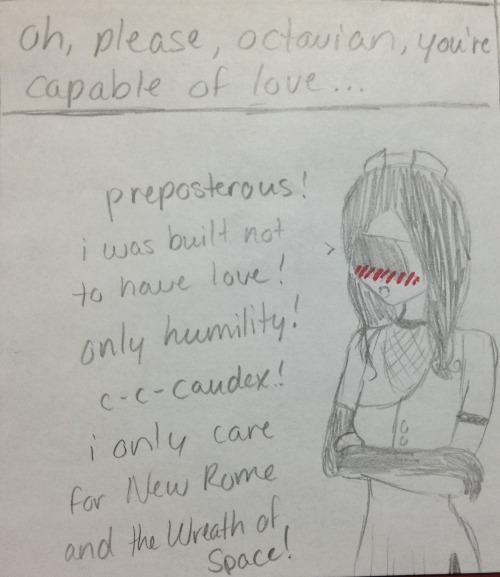 oh, please, octavian, you're
capable of love...
preposterous!
i was built not
to have love!
only humility!
c-c-caudex!
i only care
for New Rome
and the Wreath of
Space!